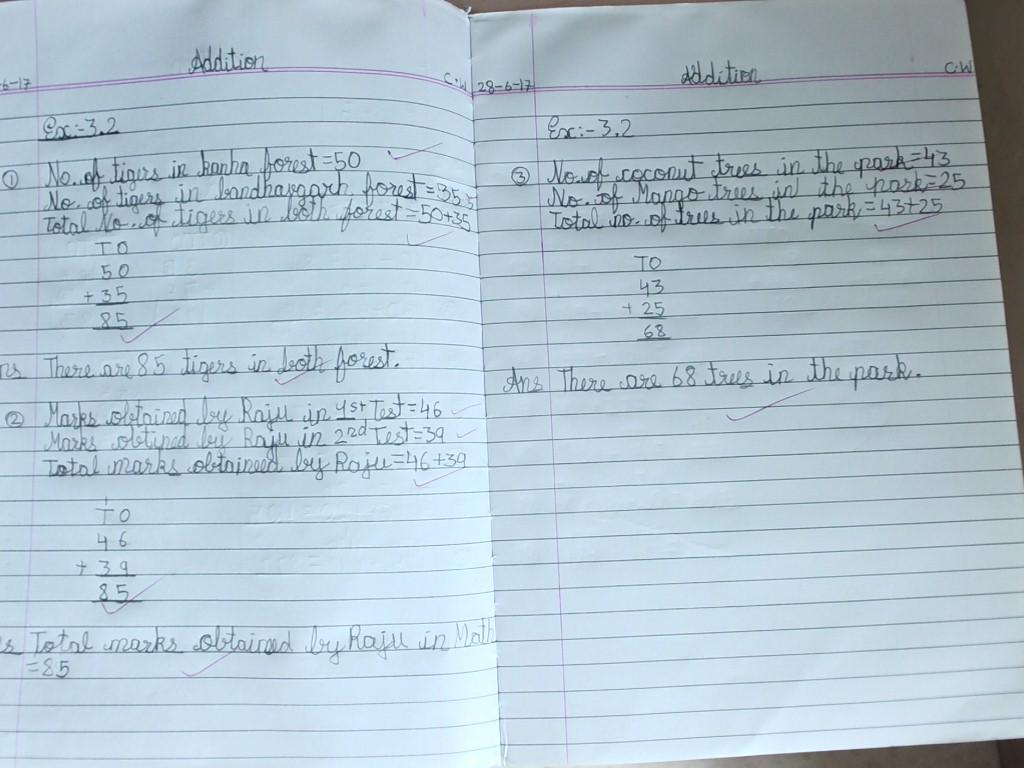 Addition
-6-17 C.W
Ex:-3.2
① No. of tigers in kanha forest=50
No. of tigers in bandhavgarh forest=35
Total No. of tigers in both forest=50+35
TO
50
+35
85
ns There are 85 tigers in both forest.
② Marks obtained by Raju in 1st Test=46
Marks obtined by Raju in 2nd Test=39
Total marks obtaineed by Raju=46+39
1
TO
46
+39
85
s Total marks obtained by Raju in Math
=85
Addition
28-6-17 C.W
Ex:-3.2
③ No. of coconut trees in the park=43
No. of Mango trees in the park=25
Total no. of trees in the park=43+25
TO
43
+25
68
Ans There are 68 trees in the park.